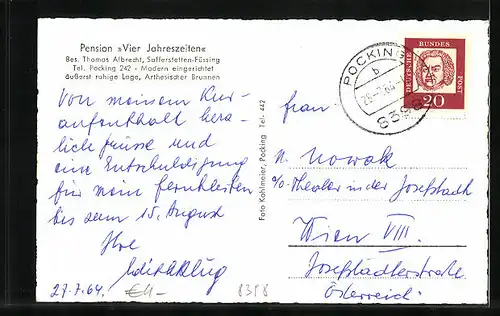 Pension »Vier Jahreszeiten«
Bes. Thomas Albrecht, Safferstetten-Füssing
Tel. Pocking 242 - Modern eingerichtet
äußerst ruhige Lage, Arthesischer Brunnen
Von meinem Kur-
aufenthalt herz-
liche Grüsse und
eine Entschuldigung
für mein Fernbleiben
bis zum 15. August
Ihre
Edith Klug
27.7.64.
€4-
8358
Foto Kohlmeier, Pocking Tel. 442
POCKING
b
8398
DEUTSCHE BUNDESPOST
20
Frau
N. Nowak
c/o Theater in der Josefstadt
Wien VIII.
Josefstädterstraße
Österreich